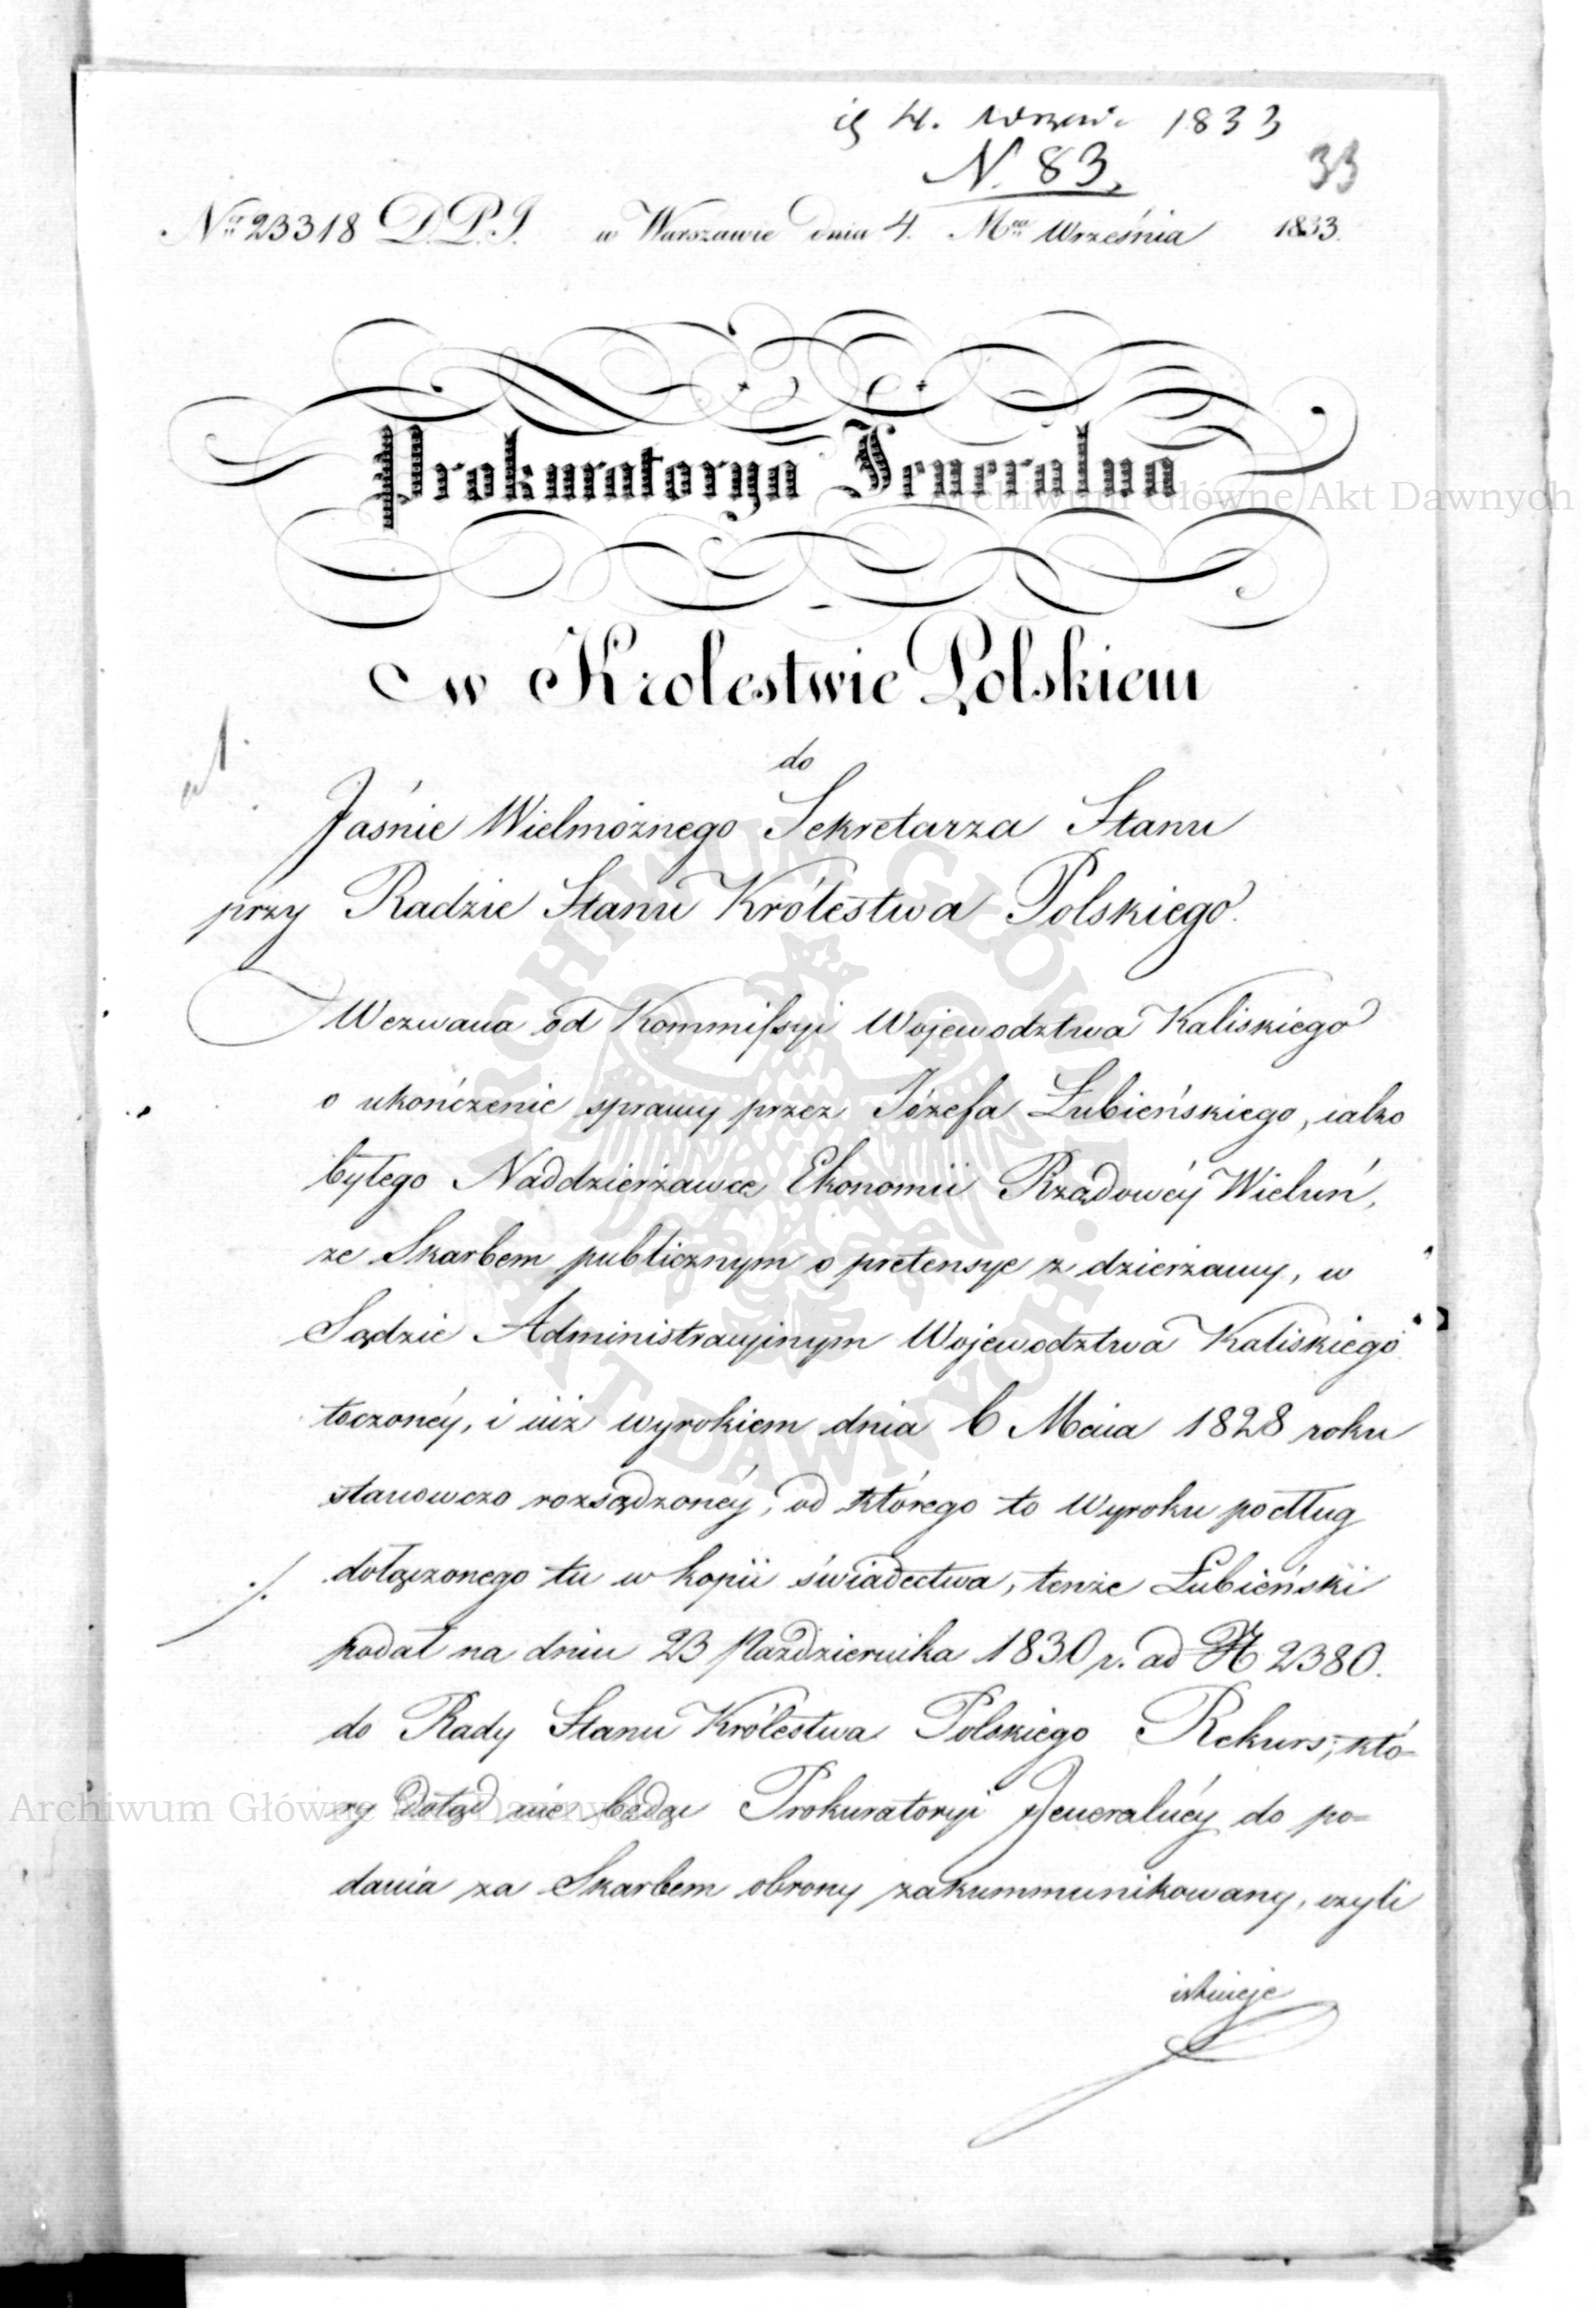 4. 1833
N. 83.
33
Nr 23318 D.P.J. w Warszawie dnia 4. Mca Września 1833.
Prokuratorya Jeneralna
w Krolestwie Polskiem
do
Jaśnie Wielmożnego Sekretarza Stanu
przy Radzie Stanu Królestwa Polskiego.
Wezwana od Kommissyi Wojewodztwa Kaliskiego
o ukończenie sprawy przez Józefa Łubieńskiego, iako
byłego Naddzierżawcę Ekonomii Rządowéy Wieluń,
ze Skarbem publicznym o pretensye z dzierżawy, w
Sądzie Administracyjnym Wojewodztwa Kaliskiego
toczonéy, i iuż wyrokiem dnia 6 Maia 1828 roku
stanowczo rozsądzonéy, od którego to Wyroku podług
./. dołączonego tu w kopii świadectwa, tenże Łubieński
podał na dniu 23 Października 1830 r. ad N 2380.
do Rady Stanu Królestwa Polskiego Rekurs, któ-
ry dotąd nie będąc Prokuratoryi Jeneralnéy do po=
dania za Skarbem obrony zakummunikowany, czyli
istnieje
Archiwum Główne Akt Dawnych
Archiwum Główne Akt Dawnych
ARCHIWUM GŁÓWNE AKT DAWNYCH